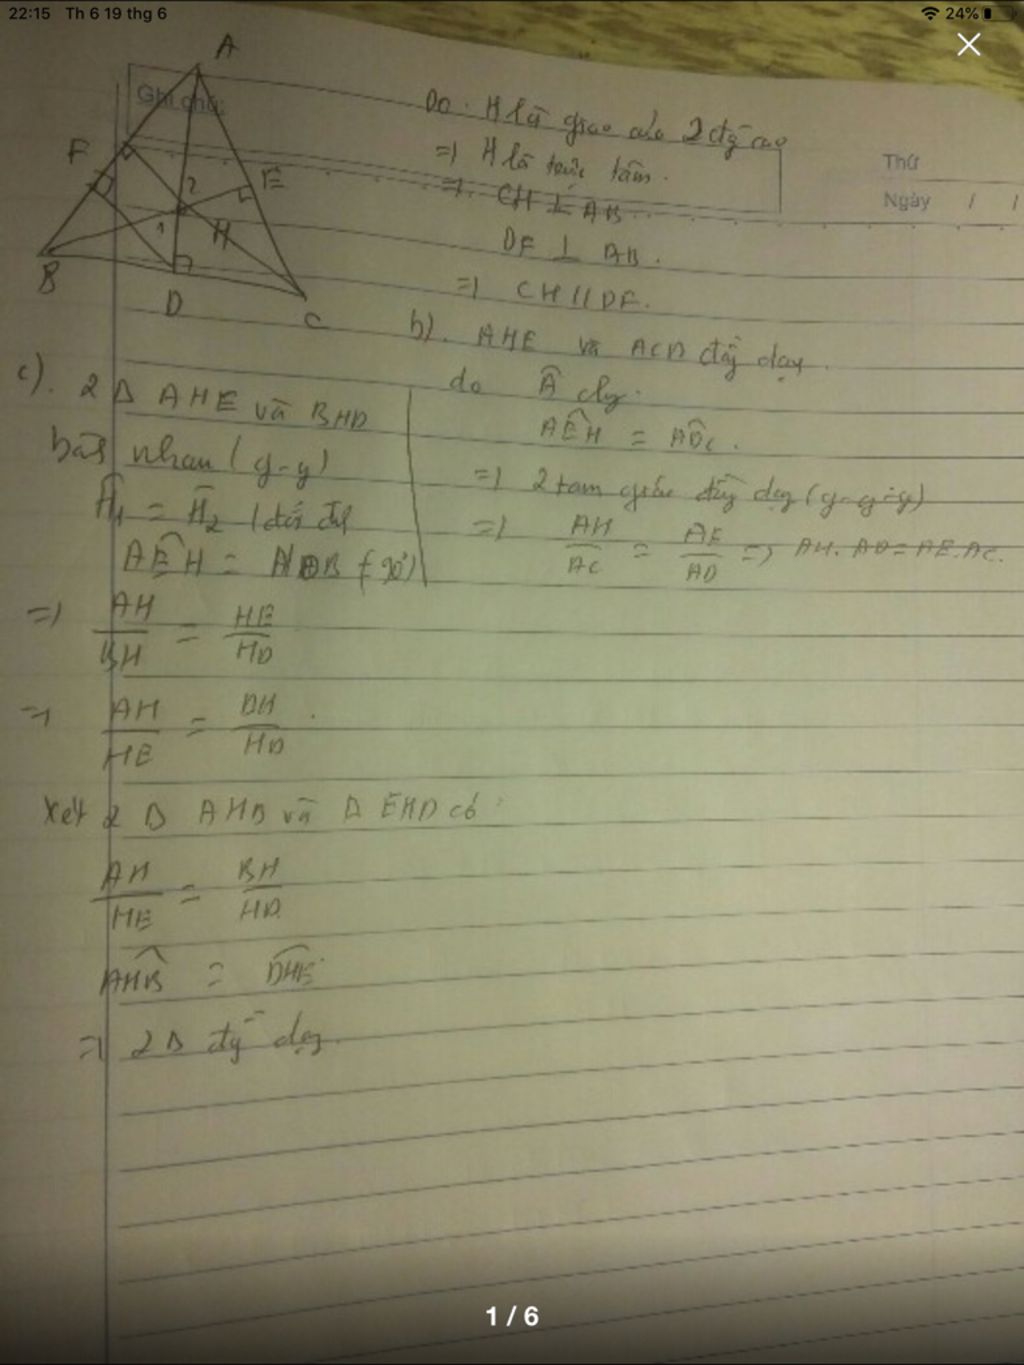 22:15 Th 6 19 thg 6
24%
A
Ghi chú:
F
E
2
1
H
B
D
C
Thứ
Ngày / /
Do H là giao của 2 đg cao
=> H là trực tâm.
=> CH ⊥ AB
DF ⊥ AB.
=> CH // DF.
b). AHE và ACD đồg dạg
do Â chg
AÊH = AD̂C.
=> 2 tam giác đồg dạg (g-g)
=> AH/AC = AE/AD => AH.AD = AE.AC.
c). 2 Δ AHE và BHD
bằg nhau (g-g)
Ĥ1 = Ĥ2 (đối đ
AÊH = (90°)
=> AH/BH = HE/HD
=> AH/HE = BH/HD
Xét 2 Δ AHB và Δ EHD có:
AH/HE = BH/HD
AĤB = DĤE
=> 2 Δ đg dạg
1 / 6